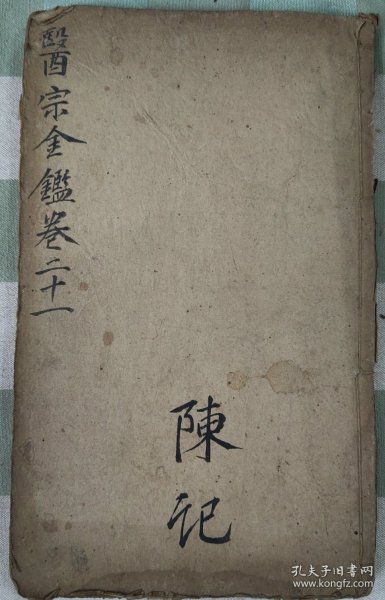 醫宗金鑑卷二十一
陳記
孔夫子旧书网
www.kongfz.com